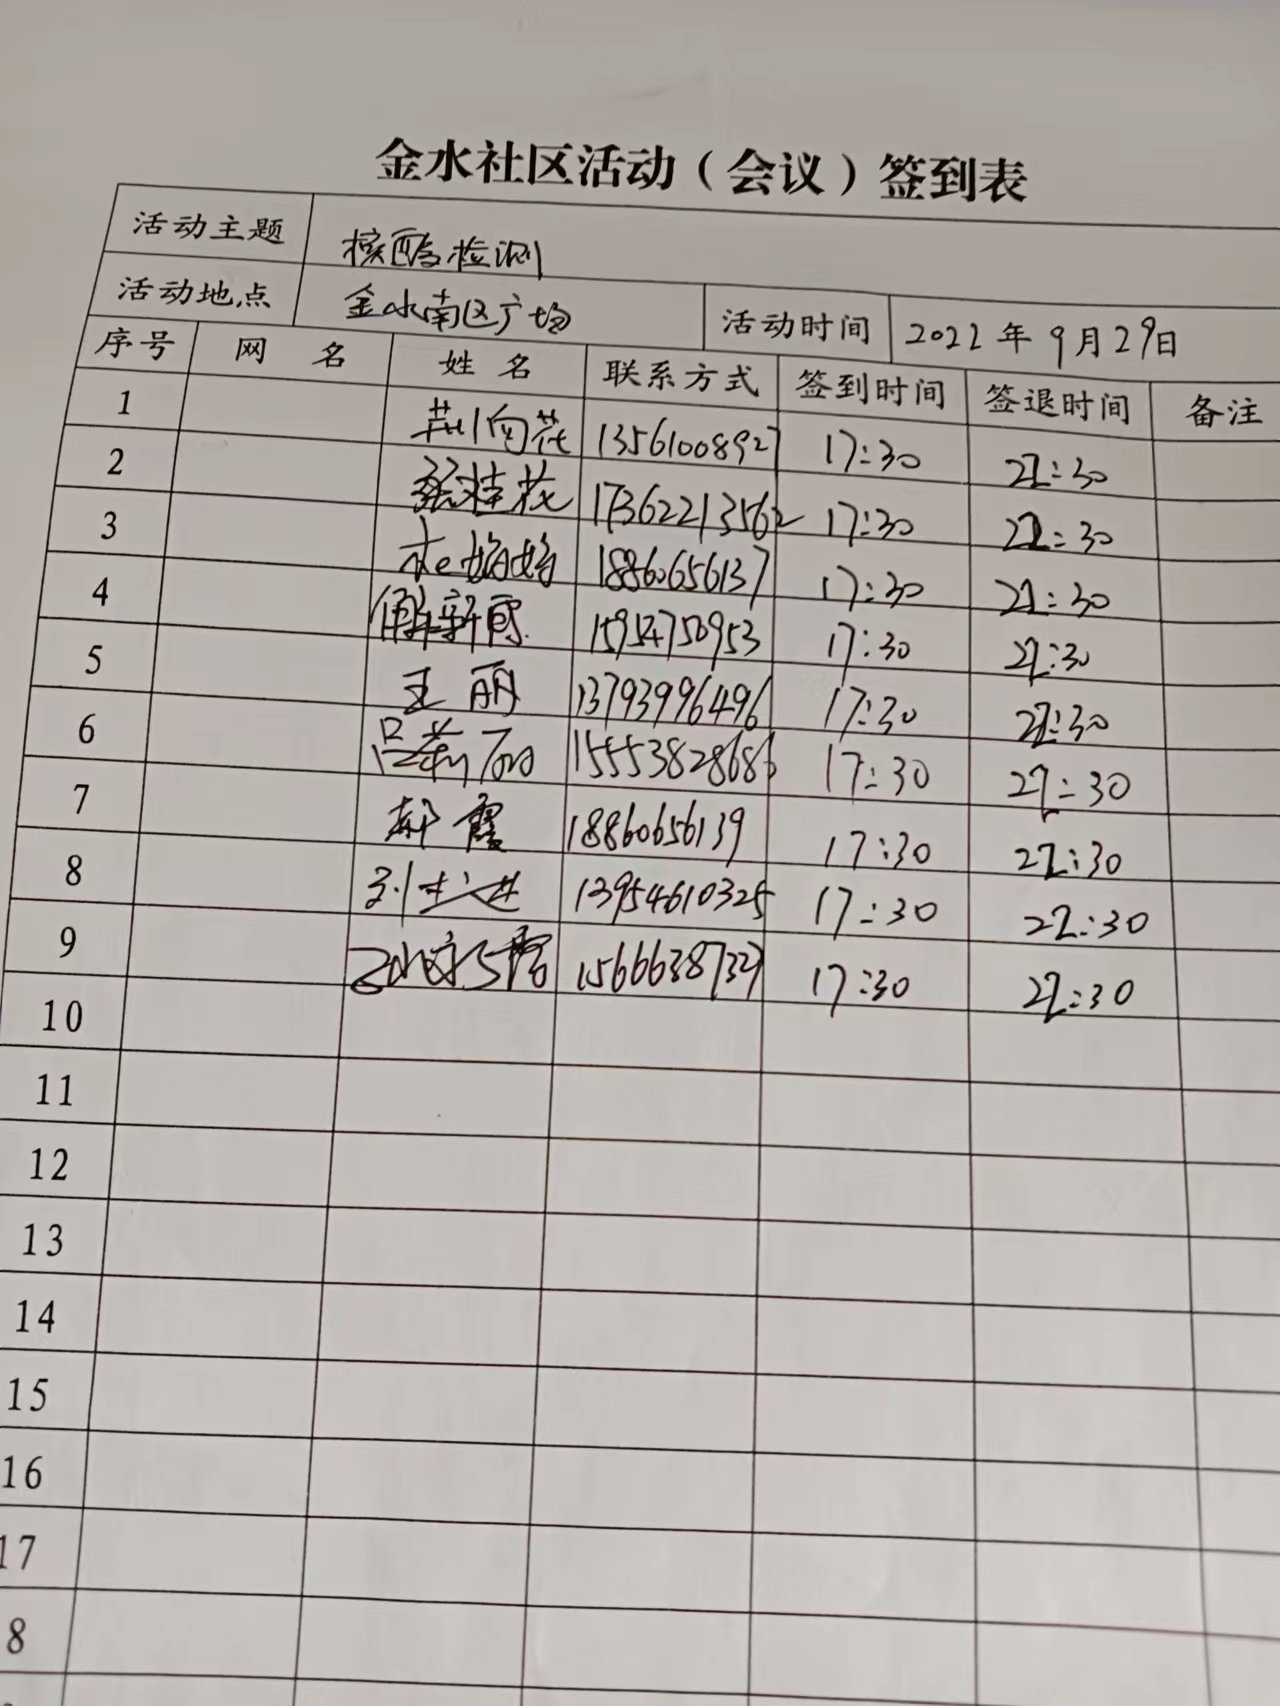 金水社区活动（会议）签到表
活动主题 核酸检测
活动地点 金水南区广场 活动时间 2022年9月29日
序号 网名 姓名 联系方式 签到时间 签退时间 备注
1 13561008927 17:30 22:30
2 张桂花 17362213562 17:30 22:30
3 18860656137 17:30 22:30
4 解新霞 15954750953 17:30 22:30
5 王丽 13793996496 17:30 22:30
6 15553828686 17:30 22:30
7 郝霞 18860656139 17:30 22:30
8 13954610325 17:30 22:30
9 17:30 22:30
10
11
12
13
14
15
16
17
8